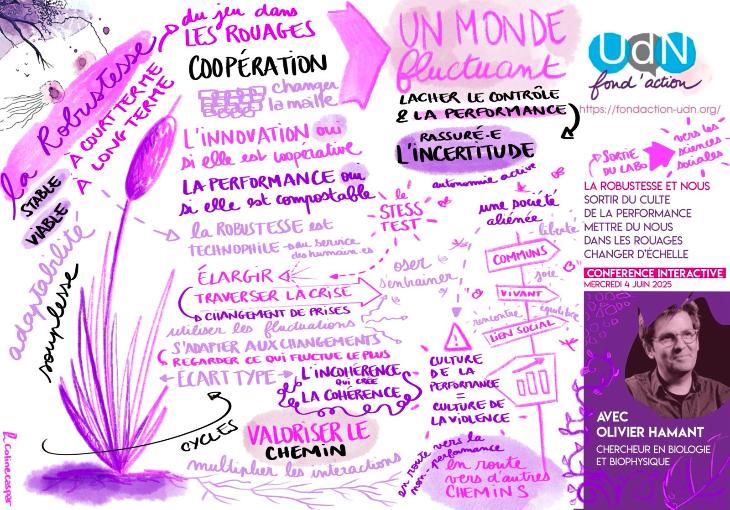 la Robustesse
À COURT TERME
À LONG TERME
STABLE
VIABLE
adaptabilité
souplesse
du jeu dans
LES ROUAGES
COOPÉRATION
changer
la maille
L'INNOVATION oui
si elle est coopérative
LA PERFORMANCE oui
si elle est compostable
la ROBUSTESSE est
TECHNOPHILE → au service
des humain·es
ÉLARGIR
TRAVERSER LA CRISE
→ CHANGEMENT DE PRISES
utiliser les fluctuations
S'ADAPTER AUX CHANGEMENTS
REGARDER CE QUI FLUCTUE LE PLUS
ÉCART TYPE
L'INCOHÉRENCE
QUI CRÉE
LA COHÉRENCE
CYCLES
VALORISER LE
CHEMIN
multiplier les interactions
UN MONDE
fluctuant
LACHER LE CONTRÔLE
& LA PERFORMANCE
RASSURÉ·E
L'INCERTITUDE
autonomie active
le
STESS
TEST
une société
aliénée
oser
s'enhainer
liberté
COMMUNS
joie
VIVANT
rencontre
équilibre
LIEN SOCIAL
CULTURE
DE LA
PERFORMANCE
=
CULTURE DE
LA VIOLENCE
en route vers la
non-performance
en route
vers d'autres
CHEMINS
UdN
fond'action
https://fondaction-udn.org/
SORTIE
DU LABO
vers les
sciences
sociales
LA ROBUSTESSE ET NOUS
SORTIR DU CULTE
DE LA PERFORMANCE
METTRE DU NOUS
DANS LES ROUAGES
CHANGER D'ÉCHELLE
CONFERENCE INTERACTIVE
MERCREDI 4 JUIN 2025
AVEC
OLIVIER HAMANT
CHERCHEUR EN BIOLOGIE
ET BIOPHYSIQUE